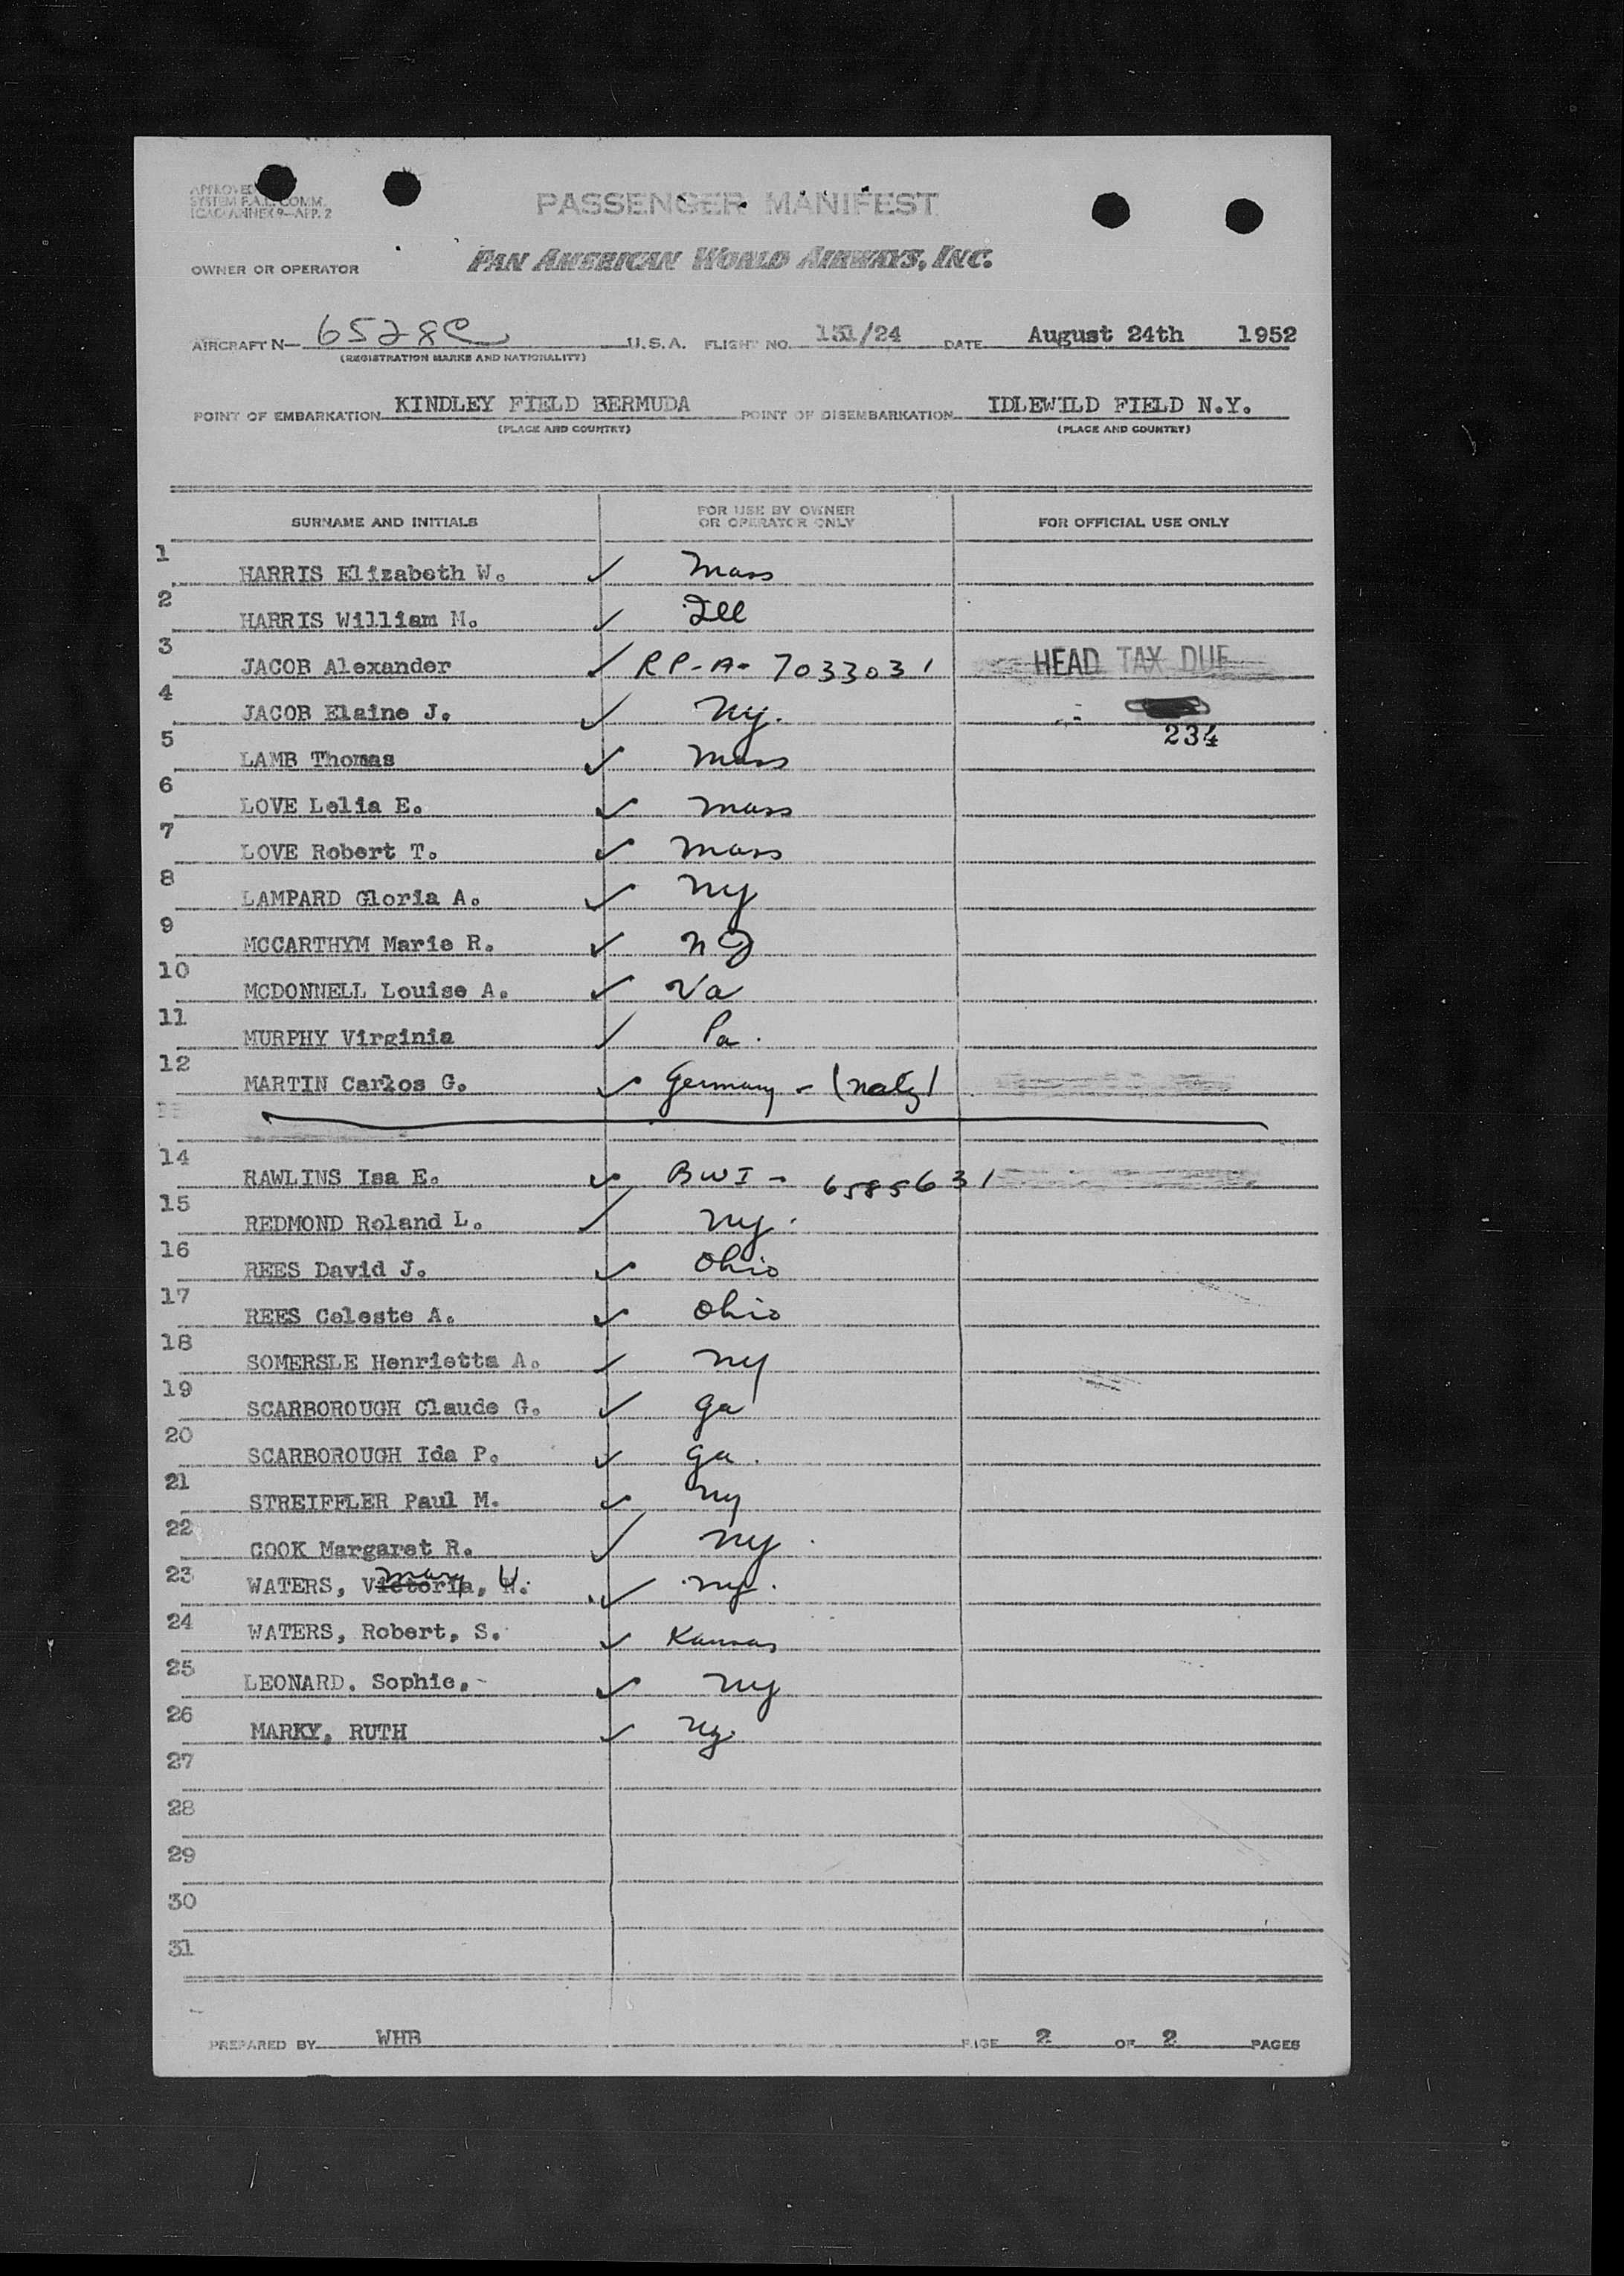 APPROVED
SYSTEM F.A.L. COMM.
ICAO ANNEX 9—APP. 2
PASSENGER MANIFEST
OWNER OR OPERATOR PAN AMERICAN WORLD AIRWAYS, INC.
AIRCRAFT N— 6528C U.S.A. FLIGHT NO. 131/24 DATE August 24th 1952
(REGISTRATION MARKS AND NATIONALITY)
POINT OF EMBARKATION KINDLEY FIELD BERMUDA POINT OF DISEMBARKATION IDLEWILD FIELD N.Y.
(PLACE AND COUNTRY) (PLACE AND COUNTRY)
SURNAME AND INITIALS FOR USE BY OWNER OR OPERATOR ONLY FOR OFFICIAL USE ONLY
1 HARRIS Elizabeth W. ✓ Mass
2 HARRIS William M. ✓ Ill
3 JACOB Alexander ✓ RP-A- 7033031 HEAD TAX DUE
4 JACOB Elaine J. ✓ NY.
234
5 LAMB Thomas ✓ Mass
6 LOVE Lelia E. ✓ Mass
7 LOVE Robert T. ✓ Mass
8 LAMPARD Gloria A. ✓ NY
9 MCCARTHYM Marie R. ✓ NJ
10 MCDONNELL Louise A. ✓ Va
11 MURPHY Virginia ✓ Pa.
12 MARTIN Carlos G. ✓ Germany - (Natz)
14 RAWLINS Isa E. ✓ BWI - 6585631
15 REDMOND Roland L. ✓ NY.
16 REES David J. ✓ Ohio
17 REES Celeste A. ✓ Ohio
18 SOMERSLE Henrietta A. ✓ NY
19 SCARBOROUGH Claude G. ✓ Ga
20 SCARBOROUGH Ida P. ✓ Ga.
21 STREIFFLER Paul M. ✓ NY
22 COOK Margaret R. ✓ NY.
23 WATERS, Victoria, Mary V. ✓ NY.
24 WATERS, Robert, S. ✓ Kansas
25 LEONARD. Sophie,- ✓ NY
26 MARKY, RUTH ✓ NY.
27
28
29
30
31
PREPARED BY WHB PAGE 2 OF 2 PAGES